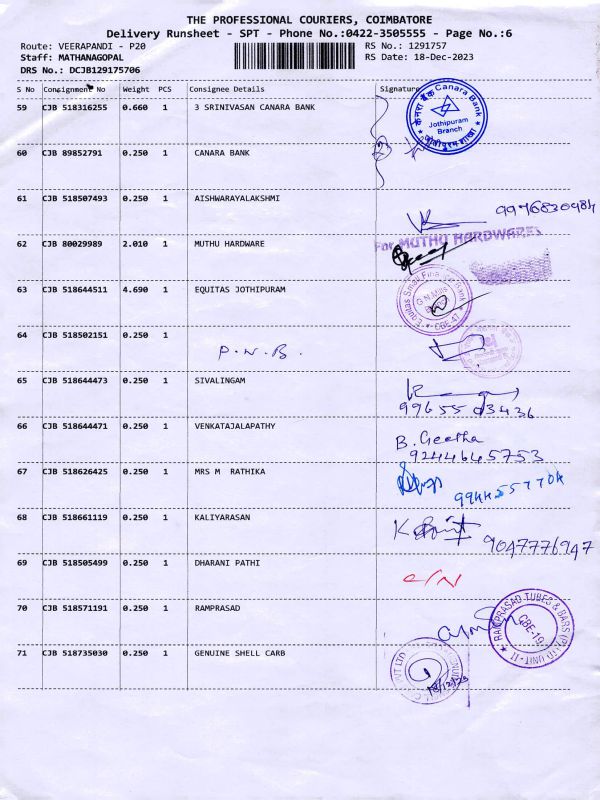 THE PROFESSIONAL COURIERS, COIMBATORE
Delivery Runsheet - SPT - Phone No.:0422-3505555 - Page No.:6
Route: VEERAPANDI - P20
RS No.: 1291757
Staff: MATHANAGOPAL
RS Date: 18-Dec-2023
DRS No.: DCJB129175706
S No Consignment No Weight PCS Consignee Details Signature
59 CJB 518316255 0.660 1 3 SRINIVASAN CANARA BANK
केनरा बैंक Canara Bank
Jothipuram
Branch
60 CJB 89852791 0.250 1 CANARA BANK
61 CJB 518507493 0.250 1 AISHWARAYALAKSHMI
9976830984
62 CJB 80029989 2.010 1 MUTHU HARDWARE
For MUTHU HARDWARES
63 CJB 518644511 4.690 1 EQUITAS JOTHIPURAM
Equitas Small Finance Bank
G.N.Mills
CBE-47
64 CJB 518502151 0.250 1
P.N.B.
65 CJB 518644473 0.250 1 SIVALINGAM
9965503436
66 CJB 518644471 0.250 1 VENKATAJALAPATHY
B. Geetha
9244645753
67 CJB 518626425 0.250 1 MRS M RATHIKA
68 CJB 518661119 0.250 1 KALIYARASAN
9047776947
69 CJB 518505499 0.250 1 DHARANI PATHI
70 CJB 518571191 0.250 1 RAMPRASAD
RAMPRASAD TUBES & BARS (P) LTD UNIT - II
CBE-19
71 CJB 518735030 0.250 1 GENUINE SHELL CARB
18/12/23